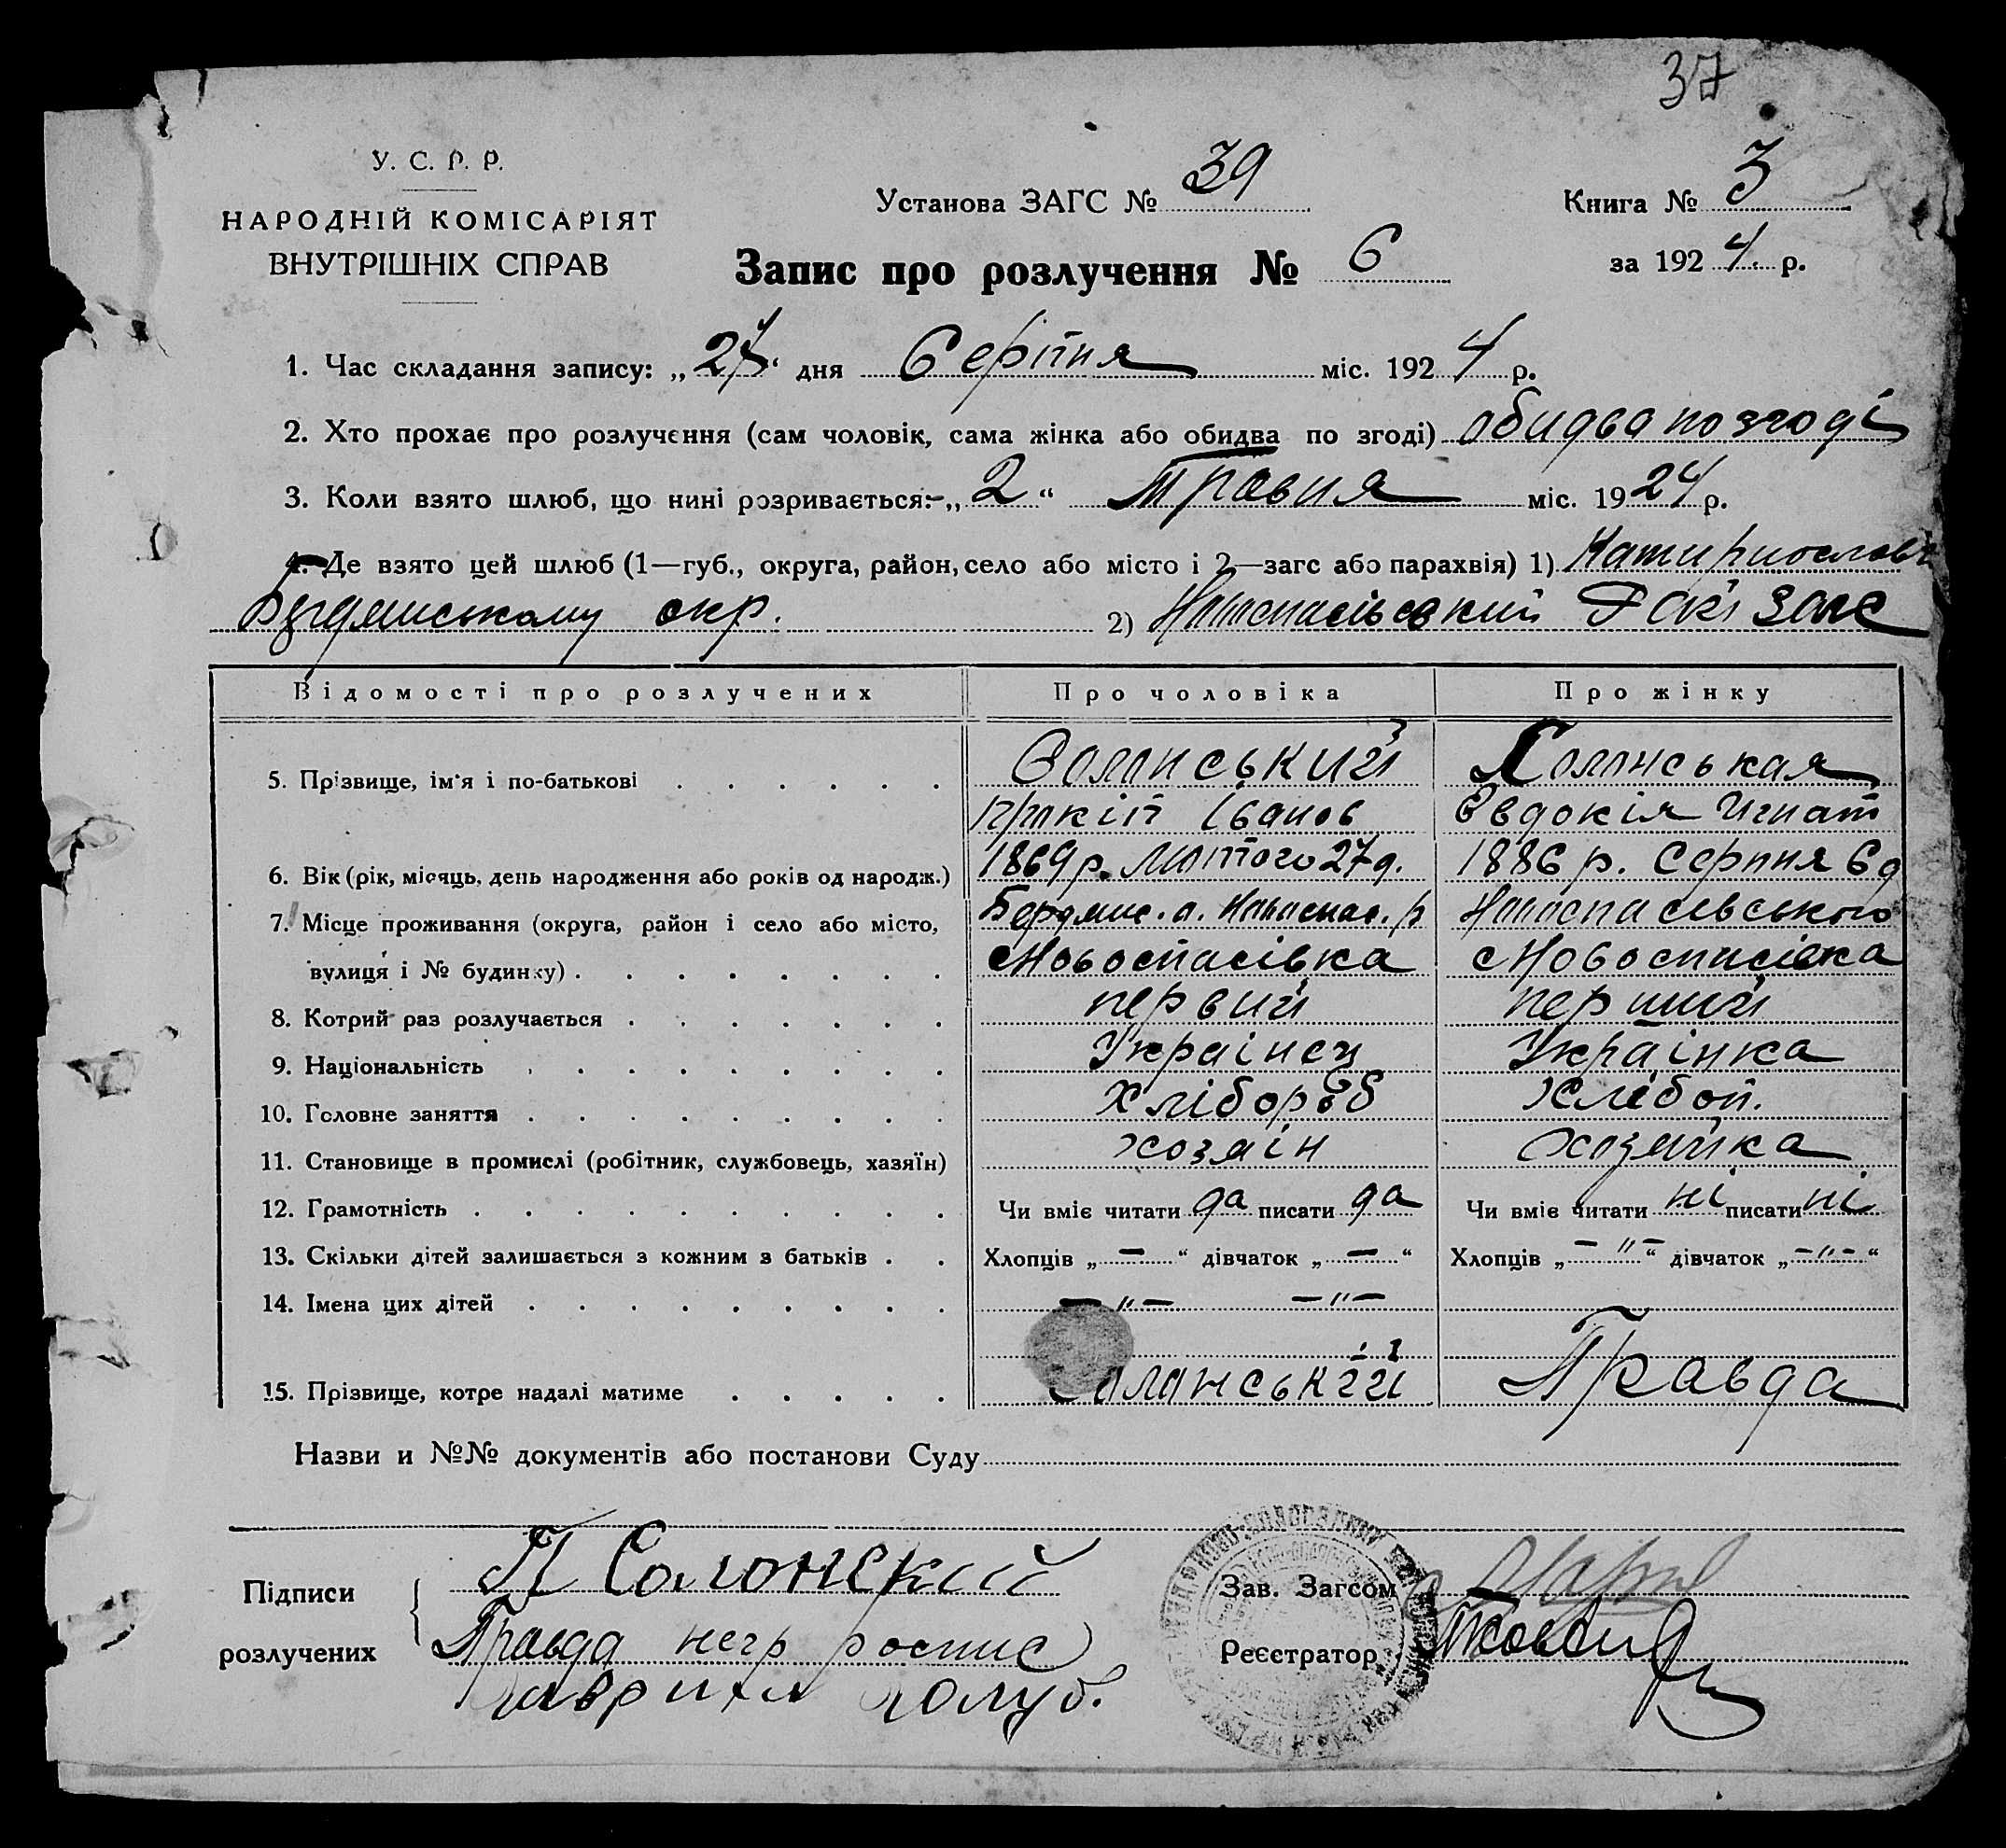 37
У. С. Р. Р.
НАРОДНІЙ КОМІСАРІЯТ
ВНУТРІШНІХ СПРАВ
Установа ЗАГС № 39
Книга № 3
Запис про розлучення № 6
за 1924 р.
1. Час складання запису: „27“ дня Серпня міс. 1924 р.
2. Хто прохає про розлучення (сам чоловік, сама жінка або обидва по згоді) обидва по згоді
3. Коли взято шлюб, що нині розривається:-„2“ травня міс. 1924 р.
4. Де взято цей шлюб (1—губ., округа, район, село або місто і 2—загс або парахвія) 1)
окр. 2) Рай загс
Відомості про розлучених Про чоловіка Про жінку
5. Прізвище, ім'я і по-батькові Солонський Солонськая
Прокіп Іванов Євдокія Игнат
6. Вік (рік, місяць, день народження або років од народж.) 1869 р. Лютого 27 д. 1886 р. Серпня 6 д
7. Місце проживання (округа, район і село або місто,
вулиця і № будинку) с Новоспасівка с Новоспасівка
8. Котрий раз розлучається первий перший
9. Національність Українец Українка
10. Головне заняття Хлібороб Хлібоп.
11. Становище в промислі (робітник, службовець, хазяїн) хозяін хозяйка
12. Грамотність Чи вміє читати да писати да Чи вміє читати ні писати ні
13. Скільки дітей залишається з кожним з батьків Хлопців „—“ дівчаток „—“ Хлопців „—"—“ дівчаток „—"—“
14. Імена цих дітей —"— —"—
15. Прізвище, котре надалі матиме Солонський Правда
Назви и №№ документів або постанови Суду
Підписи П Солонский Зав. Загсом
розлучених Правда негр роспис Реєстратор
Голуб.